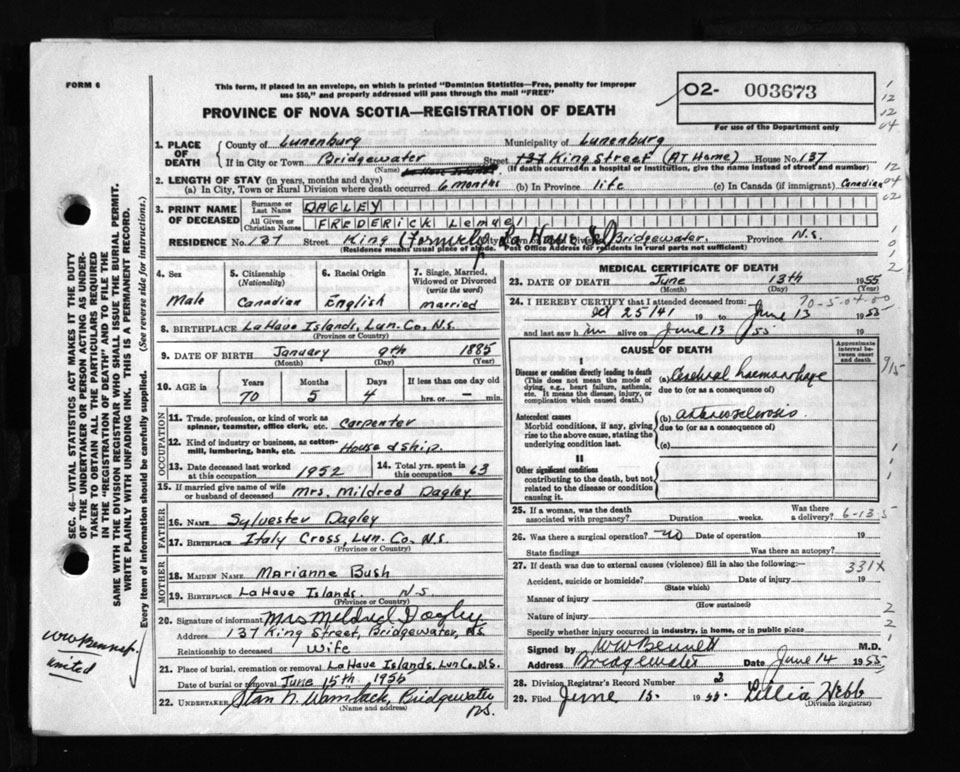 FORM 6
This form, if placed in an envelope, on which is printed "Dominion Statistics—Free, penalty for improper
use $50," and properly addressed will pass through the mail "FREE"
PROVINCE OF NOVA SCOTIA—REGISTRATION OF DEATH
02- 003673
For use of the Department only
1. PLACE OF DEATH
County of Lunenburg Municipality of Lunenburg
If in City or Town Bridgewater Street 137 King Street (At Home) House No. 137
(Name) (If death occurred in a hospital or institution, give its name instead of street and number)
2. LENGTH OF STAY (in years, months and days)
(a) In City, Town or Rural Division where death occurred 6 months (b) In Province life (c) In Canada (if immigrant) Canadian
3. PRINT NAME OF DECEASED
Surname or Last Name DAGLEY
All Given or Christian Names FREDERICK Lemuel
RESIDENCE No. 137 Street King (Formerly La Have Isl) Bridgewater. Province N.S.
(Residence means usual place of abode. Post Office Address for residents in rural parts not sufficient)
4. Sex
Male
5. Citizenship (Nationality)
Canadian
6. Racial Origin
English
7. Single, Married, Widowed or Divorced (write the word)
married
8. BIRTHPLACE LaHave Islands, Lun. Co, N.S.
(Province or Country)
9. DATE OF BIRTH January 9th 1885
(Month) (Day) (Year)
10. AGE in Years Months Days If less than one day old
70 5 4 hrs. or — min.
OCCUPATION
11. Trade, profession, or kind of work as
spinner, teamster, office clerk, etc. Carpenter
12. Kind of industry or business, as cotton-
mill, lumbering, bank, etc. House & Ship.
13. Date deceased last worked
at this occupation 1952
14. Total yrs. spent in
this occupation 63
15. If married give name of wife
or husband of deceased Mrs. Mildred Dagley
FATHER
16. NAME Sylvester Dagley
17. BIRTHPLACE Italy Cross, Lun. Co. N.S.
(Province or Country)
MOTHER
18. MAIDEN NAME Marianne Bush
19. BIRTHPLACE LaHave Islands. N.S.
(Province or Country)
20. Signature of informant Mrs Mildred Dagley
Address 137 King Street, Bridgewater, N.S.
Relationship to deceased Wife
21. Place of burial, cremation or removal LaHave Islands, Lun Co. N.S.
Date of burial or removal June 15th 1955
22. UNDERTAKER Bridgewater
N.S.
(Name and address)
MEDICAL CERTIFICATE OF DEATH
23. DATE OF DEATH June 13th 1955
(Month) (Day) (Year)
70-5-04-00
24. I HEREBY CERTIFY that I attended deceased from:
Oct 25/41 19 to June 13 1955
and last saw him alive on June 13 55 19
CAUSE OF DEATH
Approximate interval between onset and death
I
Disease or condition directly leading to death
(This does not mean the mode of
dying, e.g., heart failure, asthenia,
etc. It means the disease, injury, or
complication which caused death.)
(a) Cerebral haemorrhage
due to (or as a consequence of)
Antecedent causes
Morbid conditions, if any, giving
rise to the above cause, stating the
underlying condition last.
(b) arteriosclerosis
due to (or as a consequence of)
(c)
II
Other significant conditions
contributing to the death, but not
related to the disease or condition
causing it.
25. If a woman, was the death
associated with pregnancy? Duration weeks. Was there
a delivery? 6-13-5
26. Was there a surgical operation? No Date of operation 19
State findings Was there an autopsy?
27. If death was due to external causes (violence) fill in also the following:— 331X
Accident, suicide or homicide? Date of injury 19
(State which)
Manner of injury
(How sustained)
Nature of injury
Specify whether injury occurred in industry, in home, or in public place
Signed by WW Bennett M.D.
Address Bridgewater Date June 14 1955
28. Division Registrar's Record Number 3
29. Filed June 15. 1955. Lillia Webb
(Division Registrar)
SEC. 46—VITAL STATISTICS ACT MAKES IT THE DUTY
OF THE UNDERTAKER OR PERSON ACTING AS UNDER-
TAKER TO OBTAIN ALL THE PARTICULARS REQUIRED
IN THE "REGISTRATION OF DEATH" AND TO FILE THE
SAME WITH THE DIVISION REGISTRAR WHO SHALL ISSUE THE BURIAL PERMIT.
WRITE PLAINLY WITH UNFADING INK. THIS IS A PERMANENT RECORD.
Every item of information should be carefully supplied. (See reverse side for instructions.)
united
1
12
12
04
12
04
02
1
0
1
2
9/15
1
1
1
2
2
1